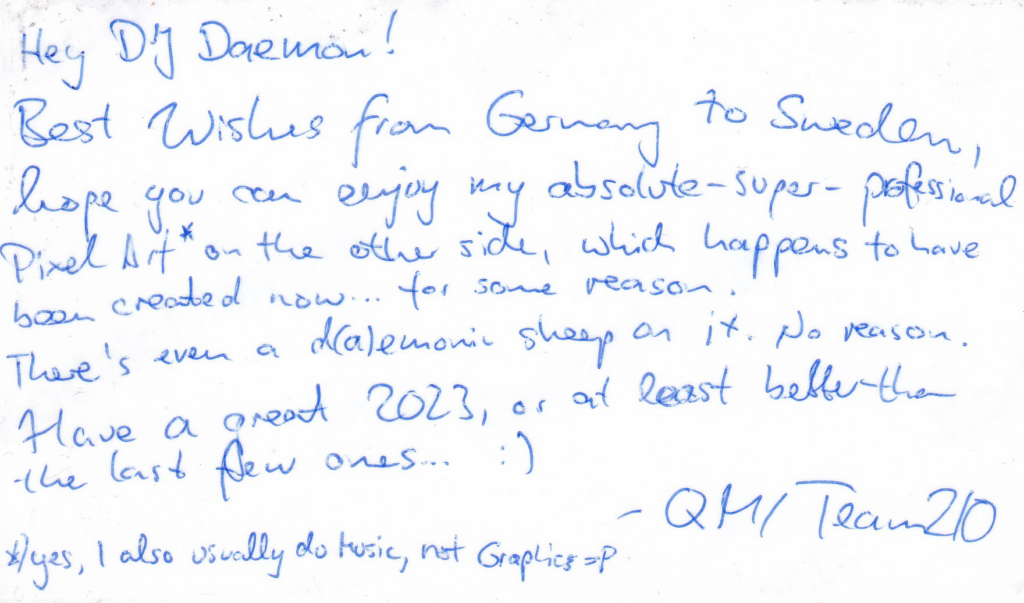 Hey DJ Daemon!
Best Wishes from Germany to Sweden,
hope you can enjoy my absolute-super-professional
Pixel Art* on the other side, which happens to have
been created now... for some reason.
There's even a d(a)emonic sheep on it. No reason.
Have a great 2023, or at least better than
the last few ones... :)
- QM/Team210
*/yes, I also usually do Music, not Graphics =P